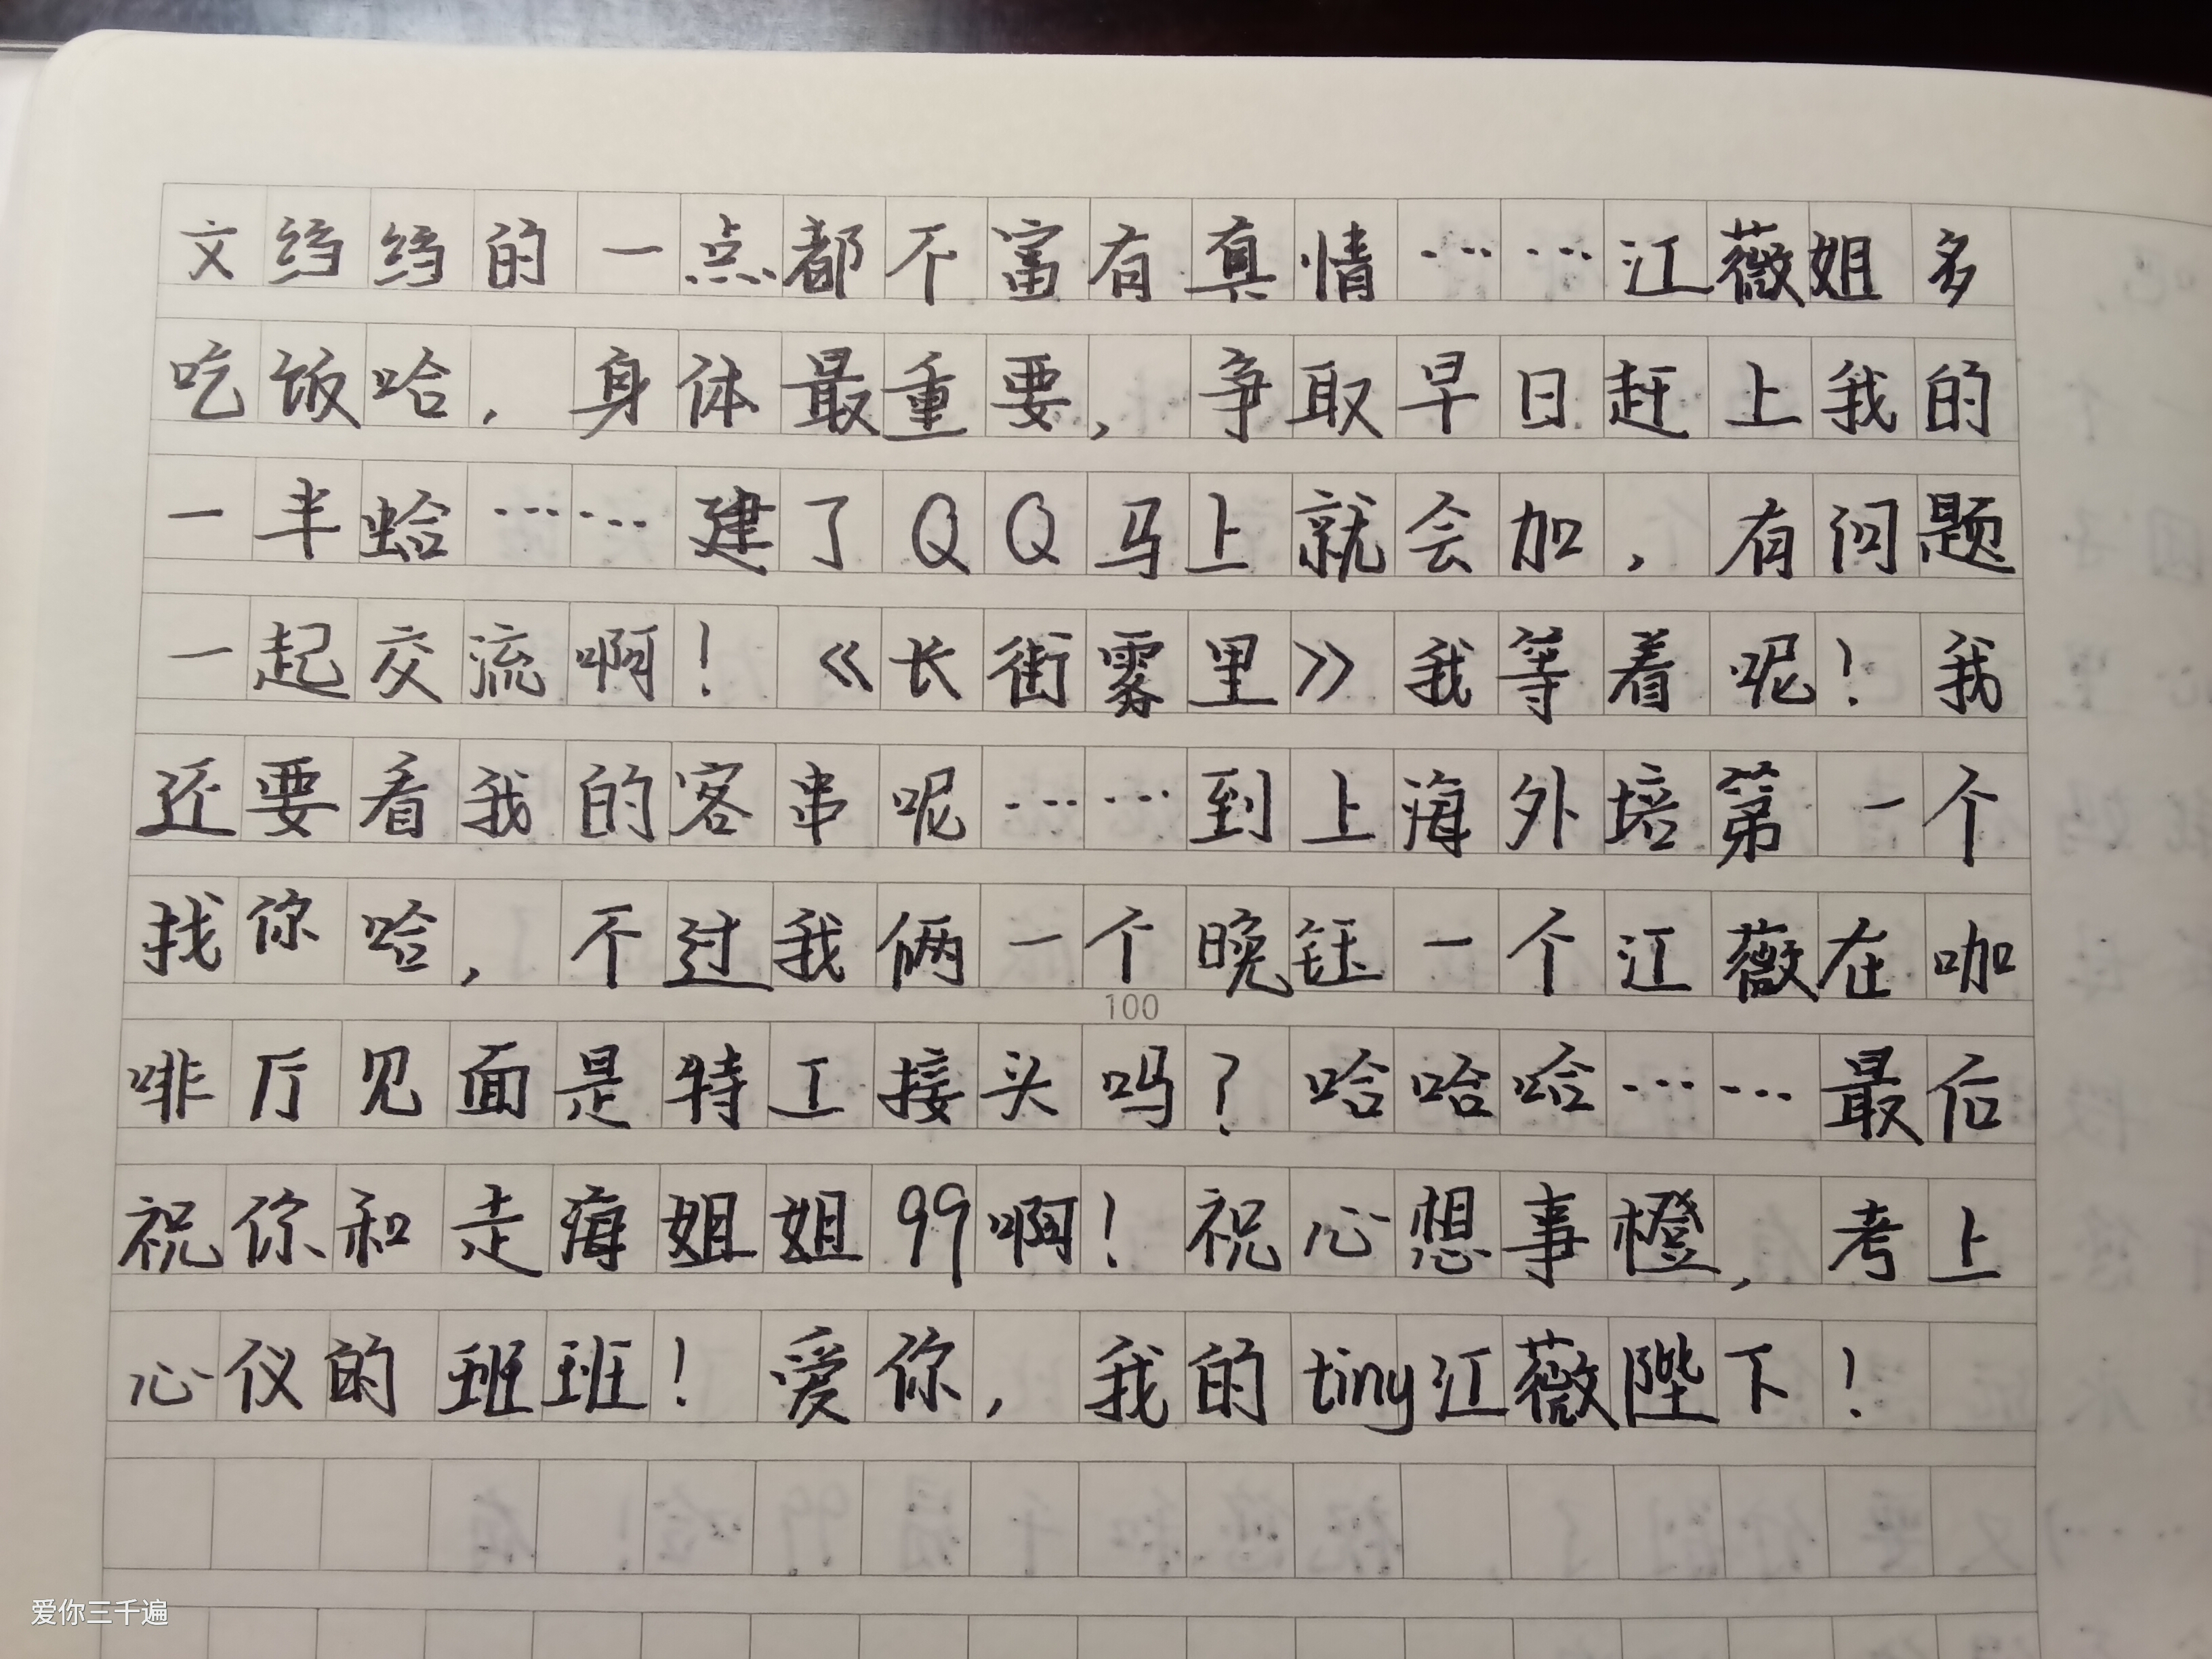 文绉绉的一点都不富有真情……江薇姐多
吃饭哈，身体最重要，争取早日赶上我的
一半蛤……建了QQ马上就会加，有问题
一起交流啊！《长街雾里》我等着呢！我
还要看我的客串呢……到上海外培第一个
找你哈，不过我俩一个晚钰一个江薇在咖
100
啡厅见面是特工接头吗？哈哈哈……最后
祝你和走海姐姐99啊！祝心想事橙，考上
心仪的班班！爱你，我的tiny江薇陛下！
爱你三千遍